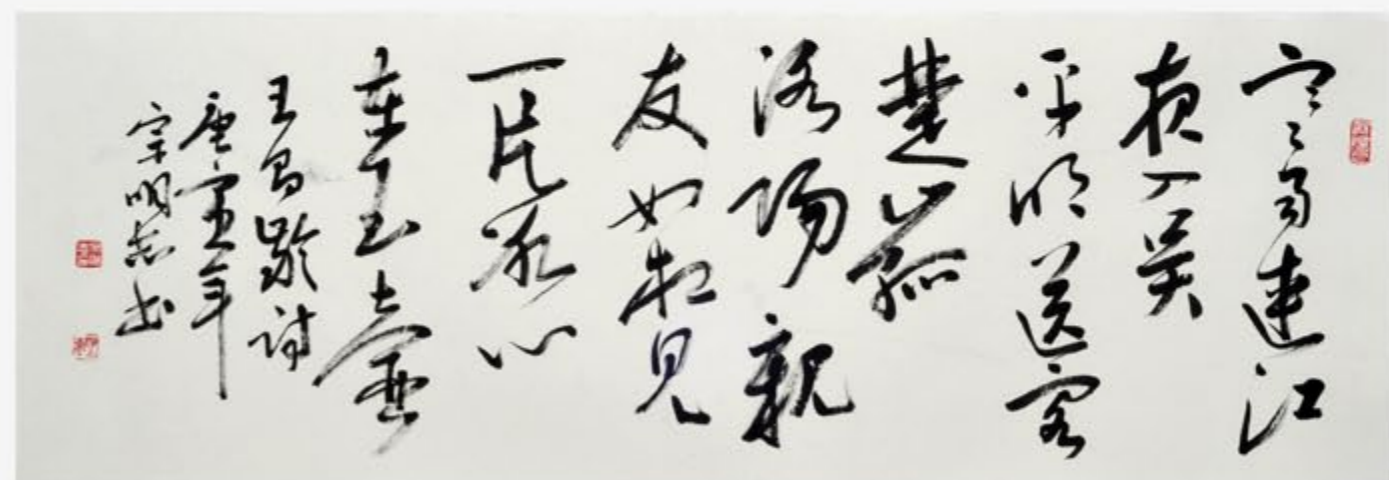 寒雨連江
夜入吴
平明送客
楚山孤
洛陽親
友如相見
一片冰心
在玉壺
王昌齡詩
庚寅年
宗明志书